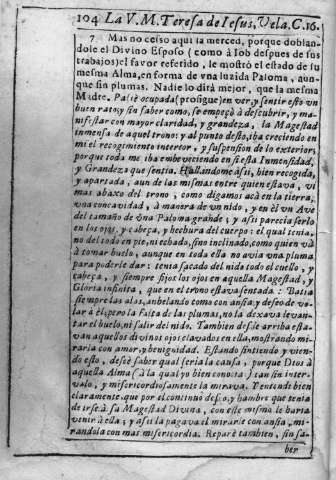 104 La V. M. Teresa de Iesus, Vela. C. 16.
7 Mas no cessò aqui la merced, porque doblan-
dole el Divino Esposo (como à Iob despues de sus
trabajos) el favor referido, le mostrò el estado de su
mesma Alma, en forma de vna luzida Paloma, aun-
que sin plumas. Nadie lo dirà mejor, que la mesma
Madre. Passè ocupada (prosigue) en ver, y sentir esto vn
buen rato, y sin saber como, se empeçò à descubrir, y ma-
nifestar con mayor claridad, y grandeza, la Magestad
inmensa de aquel trono: y al punto desto, iba creciendo en
mi el recogimiento interior, y suspension de lo exterior,
porque toda me iba embeveciendo en esta Inmensidad,
y Grandeza que sentia. Hallandome assi, bien recogida,
y apartada, aun de las mismas entre quien estava, vi
mas abaxo del trono, como digamos acà en la tierra,
vna concavidad, à manera de vn nido, y en èl vn Ave
del tamaño de vna Paloma grande; y assi parecia serlo
en los ojos, y cabeça, y hechura del cuerpo: el qual tenia,
no del todo en pie, ni echado, sino inclinado, como quien và
à tomar buelo, aunque en toda ella no avia vna pluma,
para poderle dar: tenia sacado del nido todo el cuello, y
cabeça, y siempre fijos los ojos en aquella Magestad, y
Gloria infinita, que en el trono estava sentada: Batia
siempre las alas, anhelando como con ansia, y deseo de vo-
lar à èl; pero la falta de las plumas, no la dexava levan-
tar el buelo, ni salir del nido. Tambien desde arriba esta-
van aquellos divinos ojos clavados en ella, mostrando mi-
rarla con amor, y benignidad. Estando sintiendo, y vien-
do esto, deseè saber qual seria la causa, porque Dios à
aquella Alma (à la qual yo bien conocia) tan sin inter-
valo, y misericordiosamente la mirava. Y entendì bien
claramente, que por el continuo deseo, y hambre que tenia
de irse à su Magestad Divina, con este mismo le haria
venir à ella; y assi la pagava el mirarle con ansia, mi-
randola con mas misericordia. Reparè tambien, sin sa-
ber